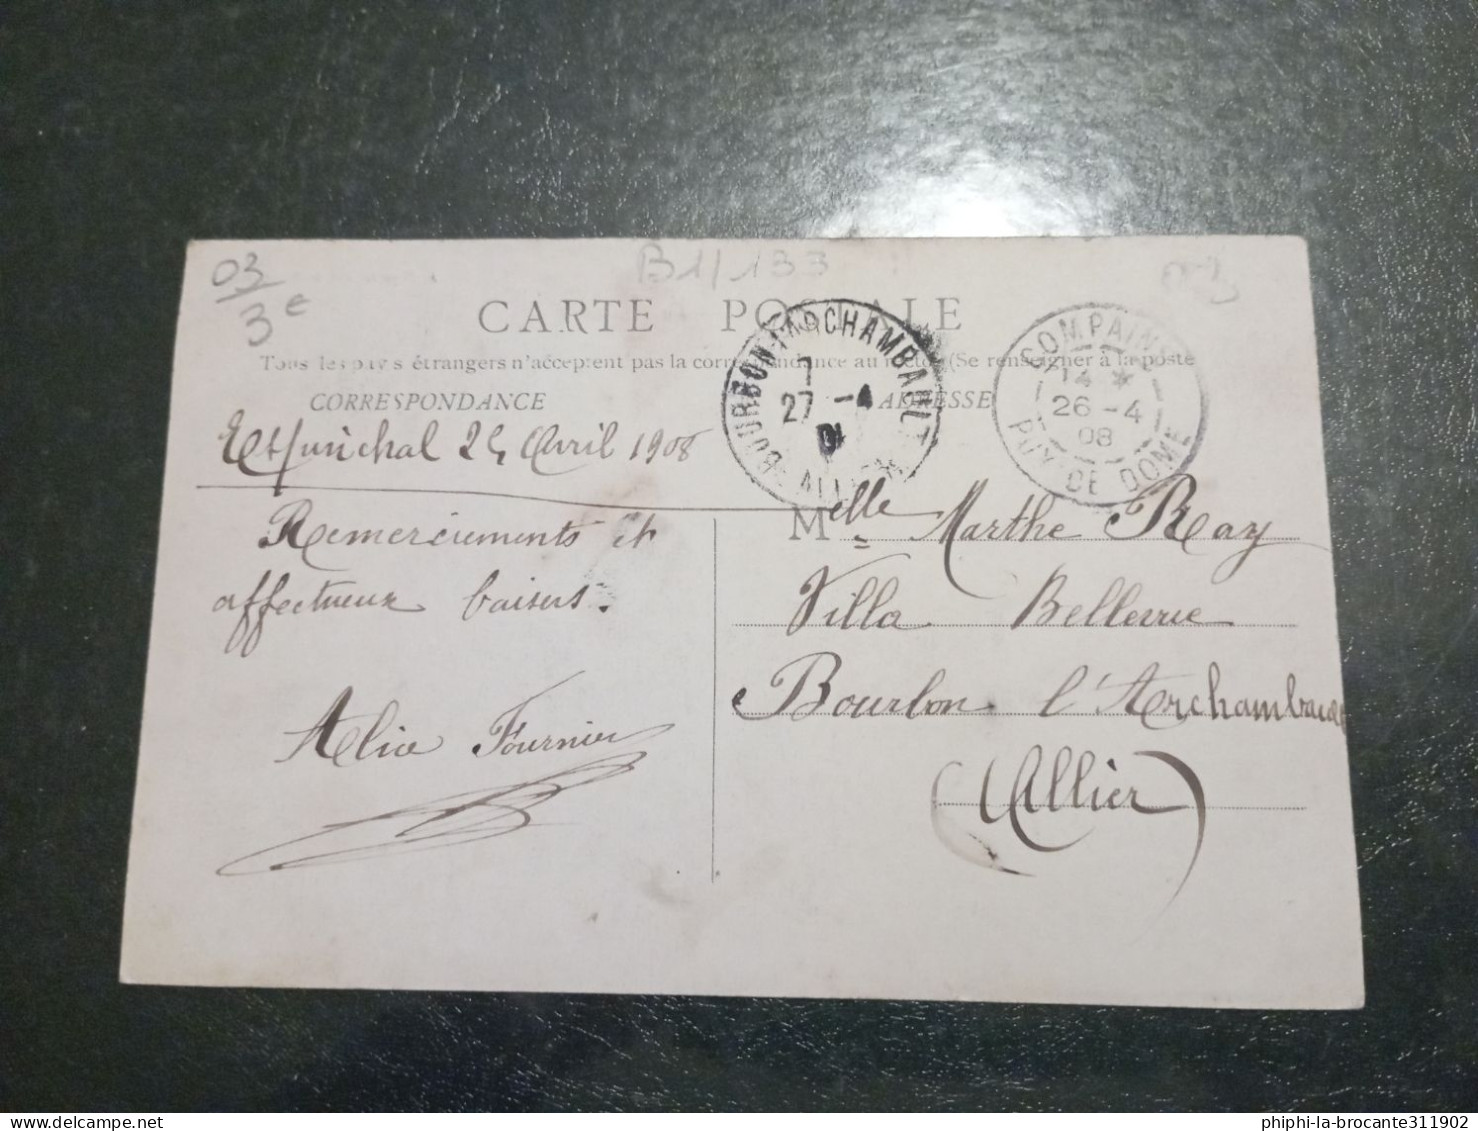 03
3e
B1/133
CARTE POSTALE
Tous les pays étrangers n'acceptent pas la correspondance au recto (Se renseigner à la poste
CORRESPONDANCE
ADRESSE
BOURBON L'ARCHAMBAULT
7
27 -4
ALLIER
COMPAINS
14 *
26 -4
08
PUY-DE-DOME
Avril 1908
Remerciements et
affectueux baisers.
Alice Fournier
Melle Marthe Ray
Villa Bellevue
Bourbon l'Archambault
(Allier)
phiphi-la-brocante311902